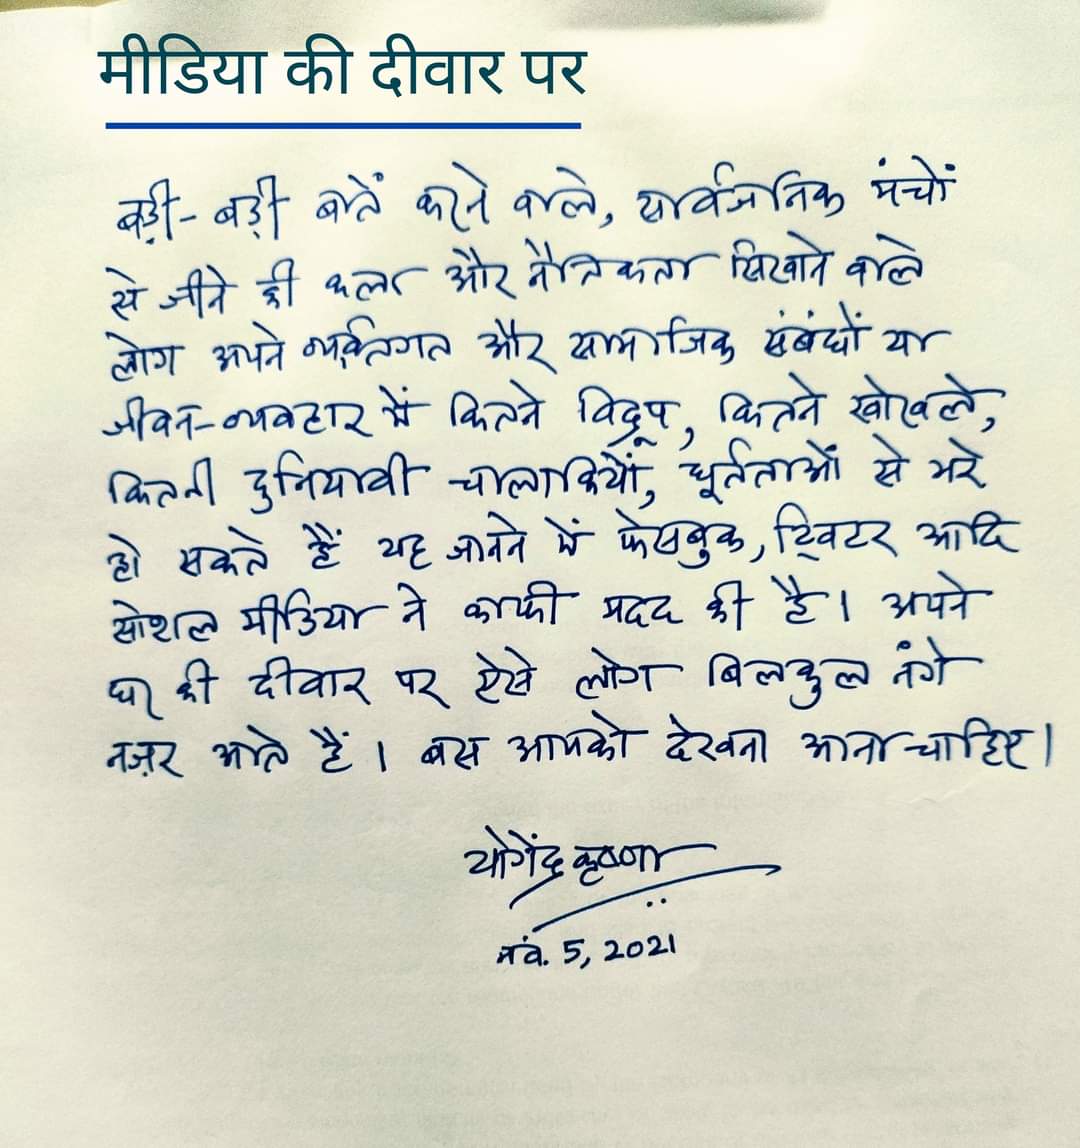 मीडिया की दीवार पर
बड़ी-बड़ी बातें करने वाले, सार्वजनिक मंचों
से जीने की कला और नैतिकता सिखाने वाले
लोग अपने व्यक्तिगत और सामाजिक संबंधों या
जीवन-व्यवहार में कितने विद्रूप, कितने खोखले,
कितनी दुनियावी चालाकियों, धूर्तताओं से भरे
हो सकते हैं यह जानने में फेसबुक, ट्विटर आदि
सोशल मीडिया ने काफी मदद की है। अपने
घर की दीवार पर ऐसे लोग बिलकुल नंगे
नज़र आते हैं। बस आपको देखना आना चाहिए।
योगेंद्र कृष्णा
नवं. 5, 2021